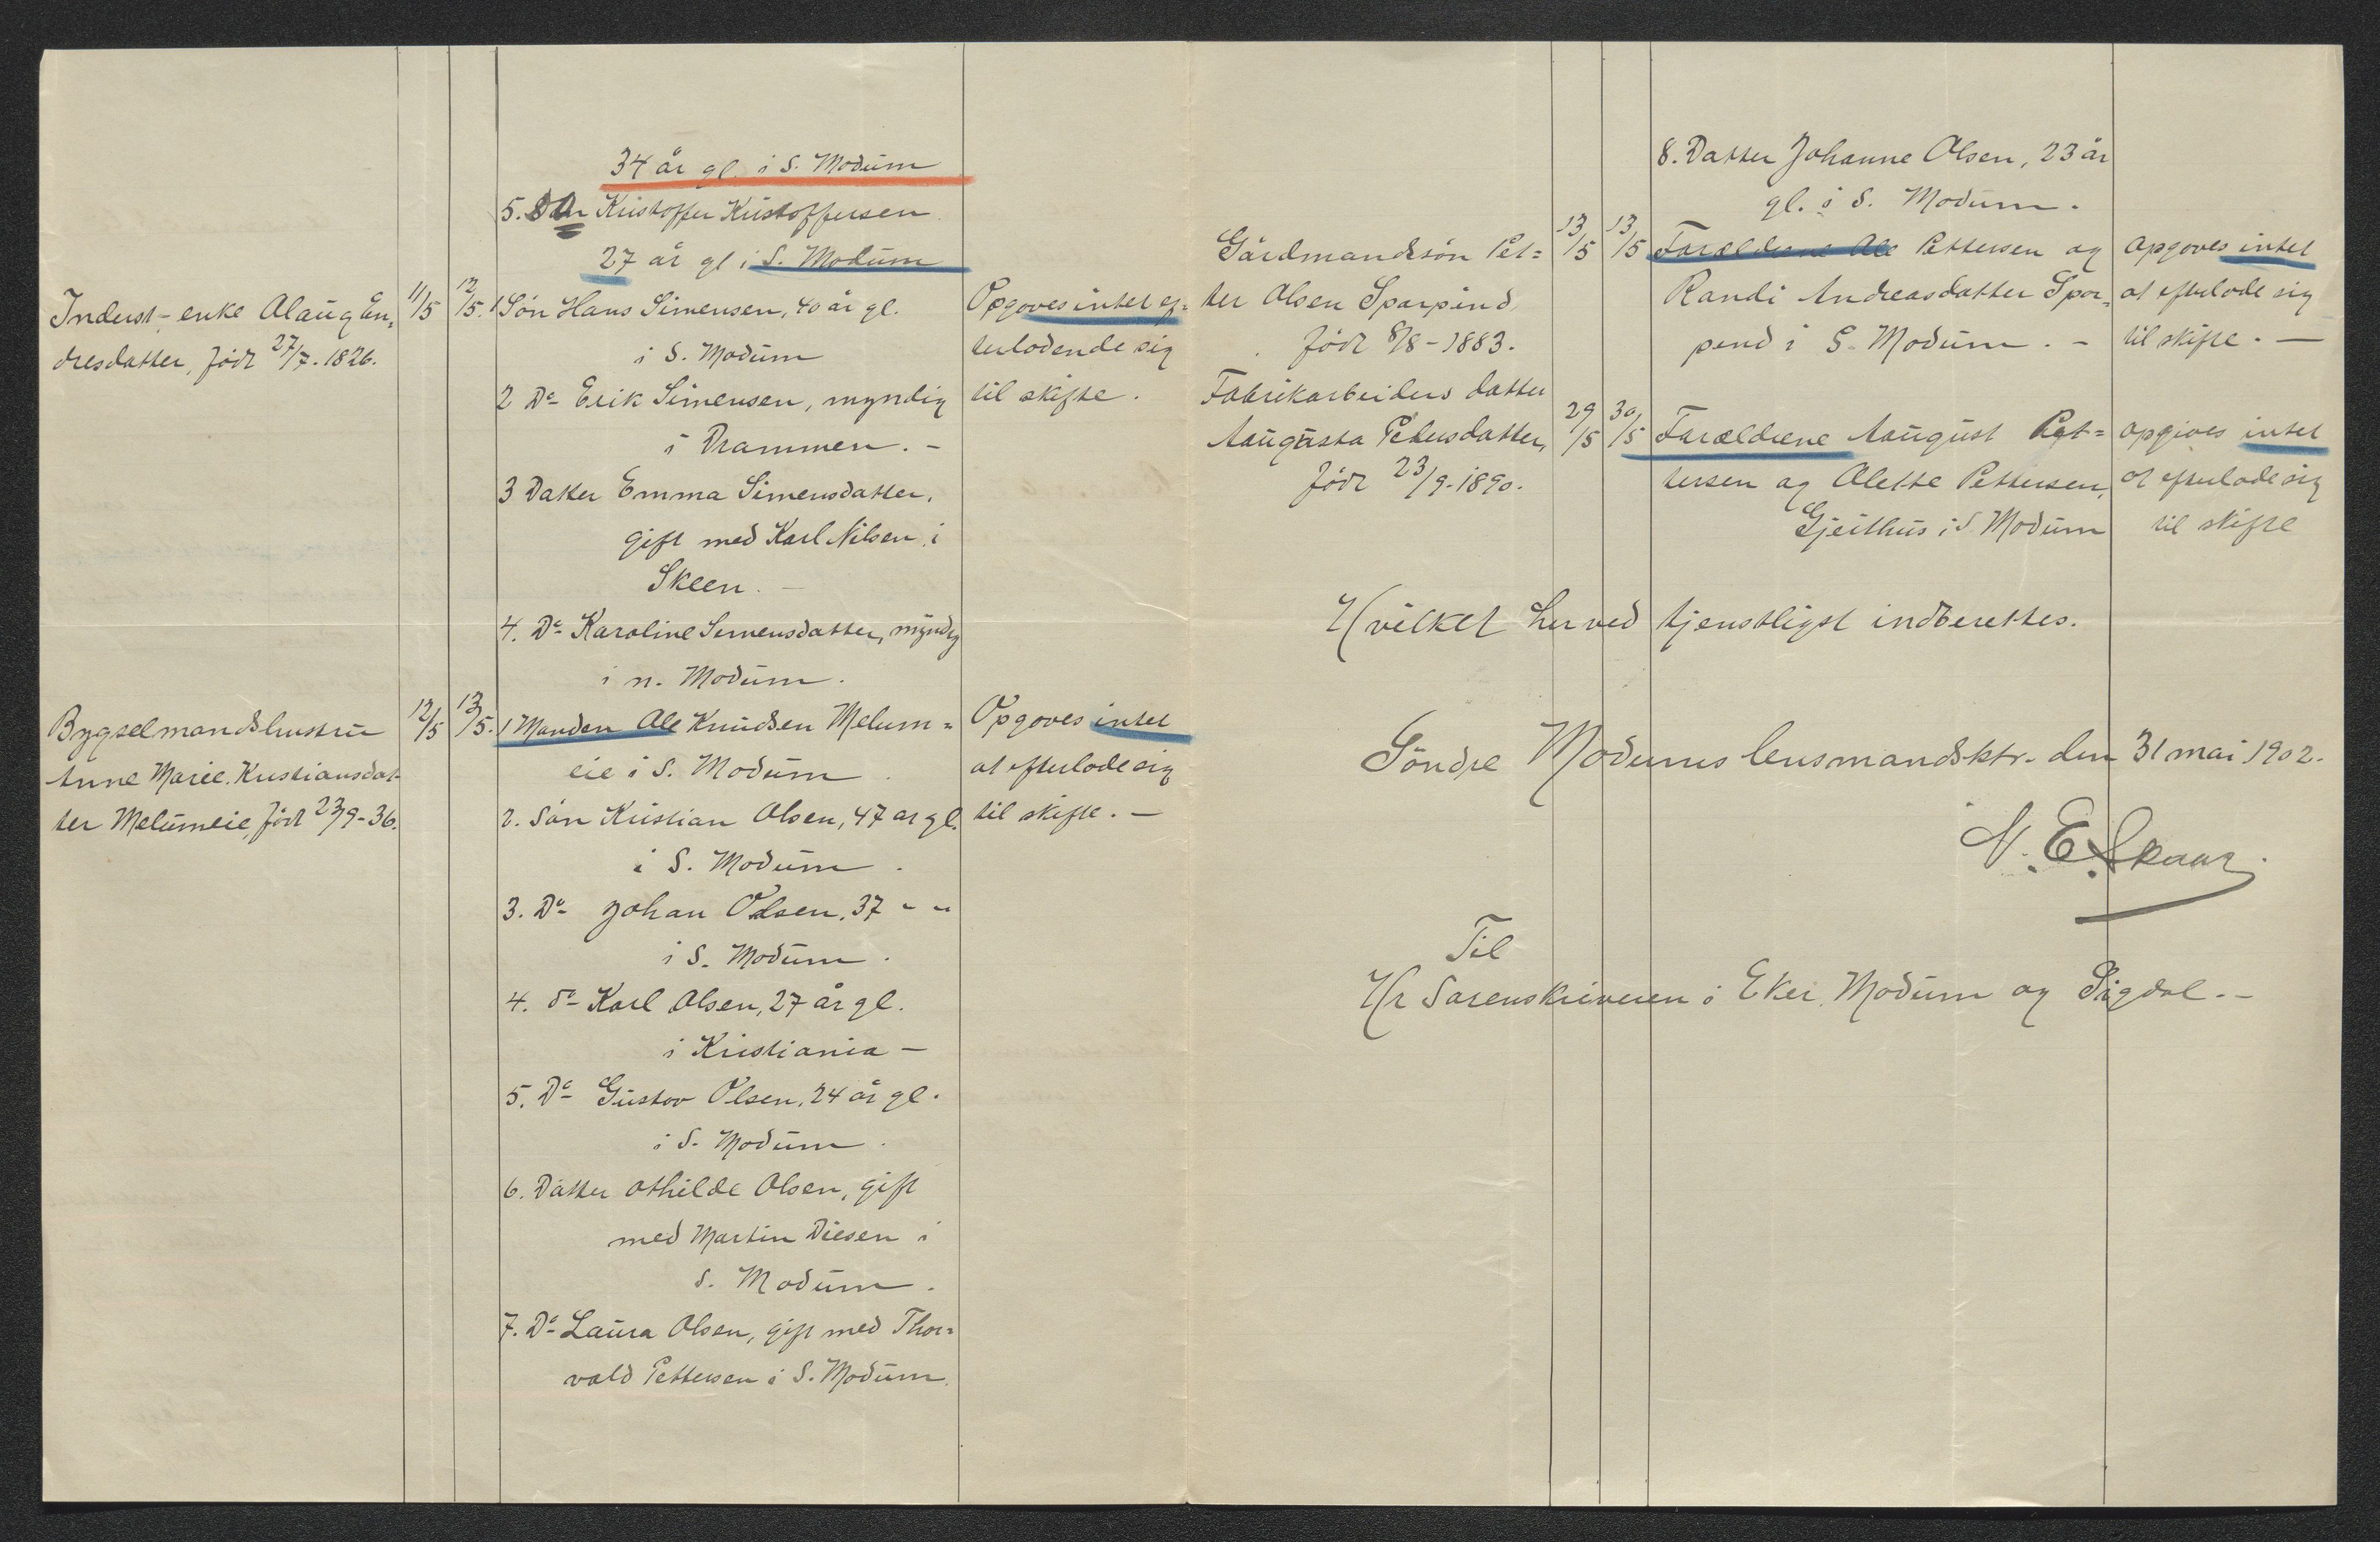 34 år gl. i S. Modum
5. Kristoffer Kristoffersen
27 år gl i S. Modum
Inderst-enke Olaug En=
dresdatter, født 27/7. 1826.
11/5
12/5.
1 Søn Hans Simensen, 40 år gl.
i S. Modum
2 Do Erik Simensen, myndig
i Drammen. -
3 Datter Emma Simensdatter,
gift med Karl Nilsen i
Skeen. -
4. Do Karoline Simensdatter, myndig
i n. Modum.
Opgoves intet ef=
terladende sig
til skifte.
Bygselmandshustru
Anne Marie Kristiansdat-
ter Melumeie, født 23/9-36.
12/5
13/5.
1 Manden Ole Knudsen Melum=
eie i S. Modum.
2. Søn Kristian Olsen, 47 år gl.
i S. Modum.
3. Do Johan Olsen, 37 " "
i S. Modum.
4. do Karl Olsen, 27 år gl.
i Kristiania -
5. Do Gustav Olsen, 24 år gl.
i S. Modum.
6. Datter Othilde Olsen, gift
med Martin Diesen i
S. Modum.
7. Do Laura Olsen, gift med Thor=
vald Pettersen i S. Modum.
Opgoves intet
at efterlade sig
til skifte. -
8. Datter Johanne Olsen, 23 år
gl. i S. Modum.
Gårdmandssøn Pet=
ter Olsen Sparpind
født 8/8-1883.
13/5
13/5
Forældrene Ole Pettersen og
Randi Andreasdatter Spar=
pend i S. Modum. -
opgoves intet
at efterlade sig
til skifte. -
Fabrikarbeiders datter
Augusta Petersdatter,
født 23/9-1890.
29/5
30/5
Forældrene August Pet=
tersen og Olette Pettersen,
Gjeithus i S. Modum
opgives intet
at efterlade sig
til skifte
Hvilket herved tjenstligst indberettes.
Søndre Modums lensmandsktr. den 31 mai 1902.
N. E. Skaar.
Til
Hr Sorenskriveren i Eker, Modum og Sigdal. -